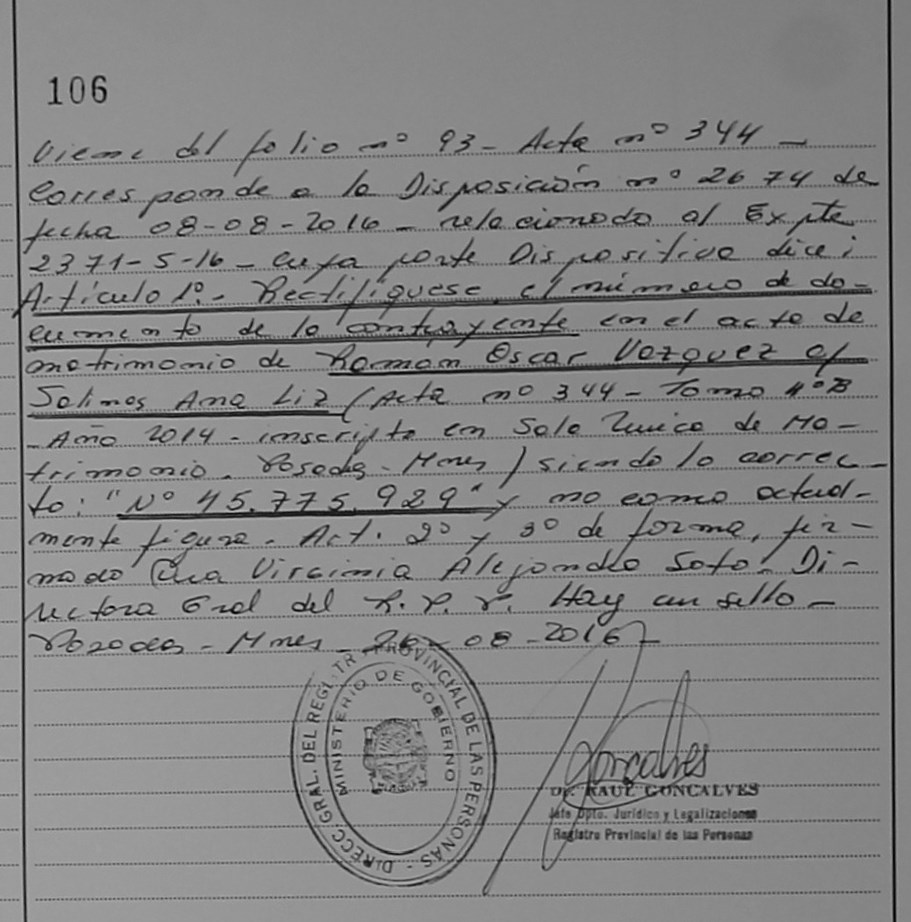 106
Viene del folio nº 93 - Acta nº 344 -
Corresponde a la Disposición nº 2674 de
fecha 08-08-2016 - relacionado al Expte
2371-5-16 - cuya parte Dispositiva dice:
Artículo 1º.- Rectifíquese, el número de do-
cumento de la contrayente en el acta de
matrimonio de Roman Oscar Vazquez c/
Salinas Ana Liz (Acta nº 344 - Tomo
- Año 2014 - inscripta en Sala Unica de Ma-
trimonio. Posadas - Mnes) siendo lo correc-
to: "Nº 45.775.929" y no como actual-
mente figura. Art. 2º y 3º de forma, fir-
mado Virginia Alejandra Soto. Di-
rectora Gral del R.P.P. Hay un sello -
Posadas - Mnes 26-08-2016-
DIRECC. GRAL. DEL REGISTR PROVINCIAL DE LAS PERSONAS -
MINISTERIO DE GOBIERNO
Goncalves
Dr. RAUL GONCALVES
Jefe Dpto. Jurídico y Legalizaciones
Registro Provincial de las Personas